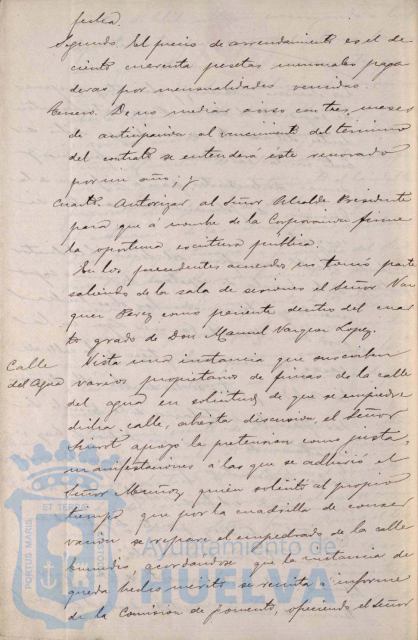 fecha.
Segundo. El precio de arrendamiento es el de
ciento cuarenta pesetas mensuales paga
deras por mensualidades vencidas.
Tercero. De no mediar aviso con tres meses
de anticipación al vencimiento del término
del contrato se entenderá éste renovado
por un año; y
Cuarto. Autorizar al Señor Alcalde Presidente
para que á nombre de la Corporación firme
la oportuna escritura pública.
En los precedentes acuerdos no tomó parte
saliendo de la sala de sesiones el Señor Vaz
quez Perez como pariente dentro del cuar
to grado de Don Manuel Vazquez Lopez.
Calle del Agua
Vista una instancia que suscriben
varios propietarios de fincas de la calle
del agua en solicitud de que se empiedre
dicha calle, abierta discusión, el Señor
apoyó la pretension como justa,
manifestaciones á las que se adhirió el
Señor Muñoz quien solicitó al propio
tiempo que por la cuadrilla de conser
vación se repare el empedrado de la calle
acordandose que la instancia de
queda hecho mérito se remita á informe
de la Comision de fomento, ofreciendo el Señor
PORTUS MARIS
ET TERRAE
CUSTODIA
Ayuntamiento de
HUELVA